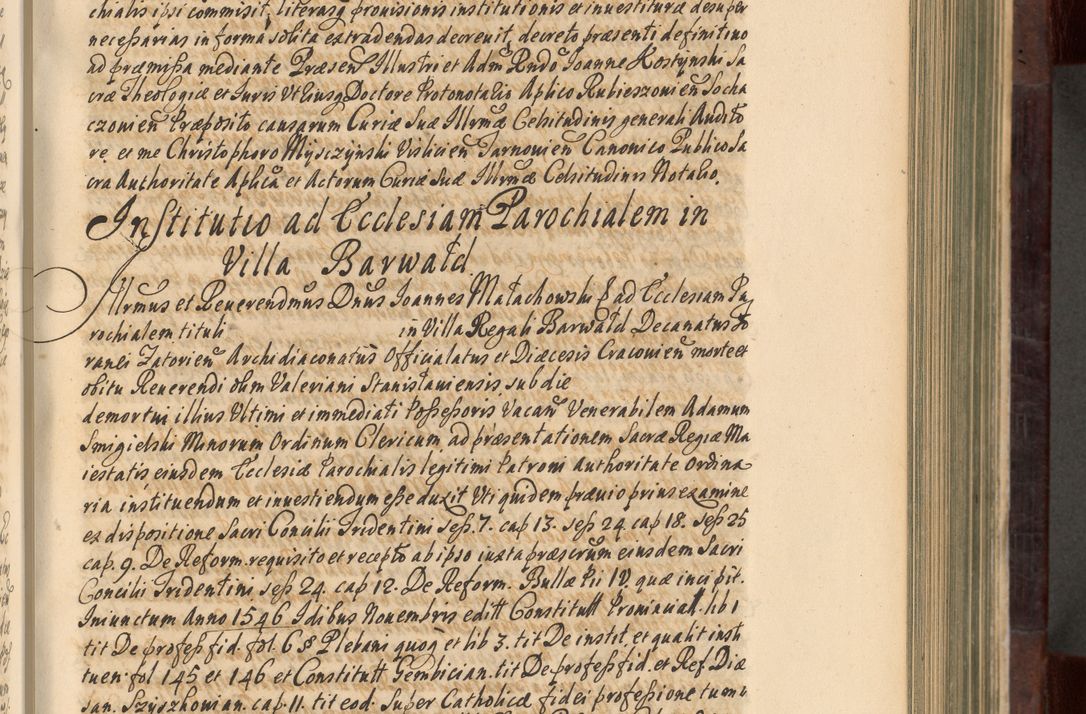 chialis ipsi commisit, literasq prouisionis institutionis et inuestituræ desuper
necessarias in forma solita extradendas decreuit, decreto præsenti definitiuo
ad præmissa mediante Præsen Illustri et Adm Rndo Ioanne Kostynski Sa
cræ Theologiæ et Iuris Vtriusq Doctore Protonotario Aplico Rubieszouien Socha
czouien Præposito causarum Curiæ Suæ Illrmæ Celsitudinis generali Audito
re, et me Christophoro Mysczynski Vislicien Tarnouien Canonico Publico Sa
cra Authoritate Aplica et Actorum Curiæ Suæ Illrmæ Celsitudinis Notario.
Institutio ad Ecclesiam Parochialem in
Villa Barwałd
Illrmus et Reuerendmus Dnus Ioannes Małachowski P ad Ecclesiam Pa
rochialem tituli in Villa Regali Barwałd Decanatus Fo
ranei Zatorien Archidiaconatus Officialatus et Diæcesis Cracouien morte et
obitu Reuerendi olim Valeriani Stanislauiensis sub die
demortui illius Vltimi et immediati Possessoris Vacan Venerabilem Adamum
Smigielski Minorum Ordinum Clericum, ad præsentationem Sacræ Regiæ Ma
iestatis eiusdem Ecclesiæ Parochialis legitimi Patroni authoritate Ordina
ria instituendum et inuestiendum esse duxit Vti quidem præuio prius examine
ex dispositione Sacri Concilii Tridentini Seß. 7. cap 13. seß 24 cap 18. Seß 25
cap. 9. De Reform. requisito et recepto ab ipso iuxta præscrum eiusdem Sacri
Concilii Tridentini seß 24. cap 12. De Reform. Bullæ Pii IV. quæ incipit.
Iniunctum Anno 1546 Idibus Nouembris editt Constitutt Prouincial. lib 1
tit De profess fid. fol. 6 § Plebani quoq et lib 3. tit De instit, et qualit insti
tuen. fol 145 et 146 et Constitutt Gembician. tit De profess fid. et Ref. Diæ
san. Szyszkowian. cap. 11. tit eod. Super Catholicæ fidei professione tum i